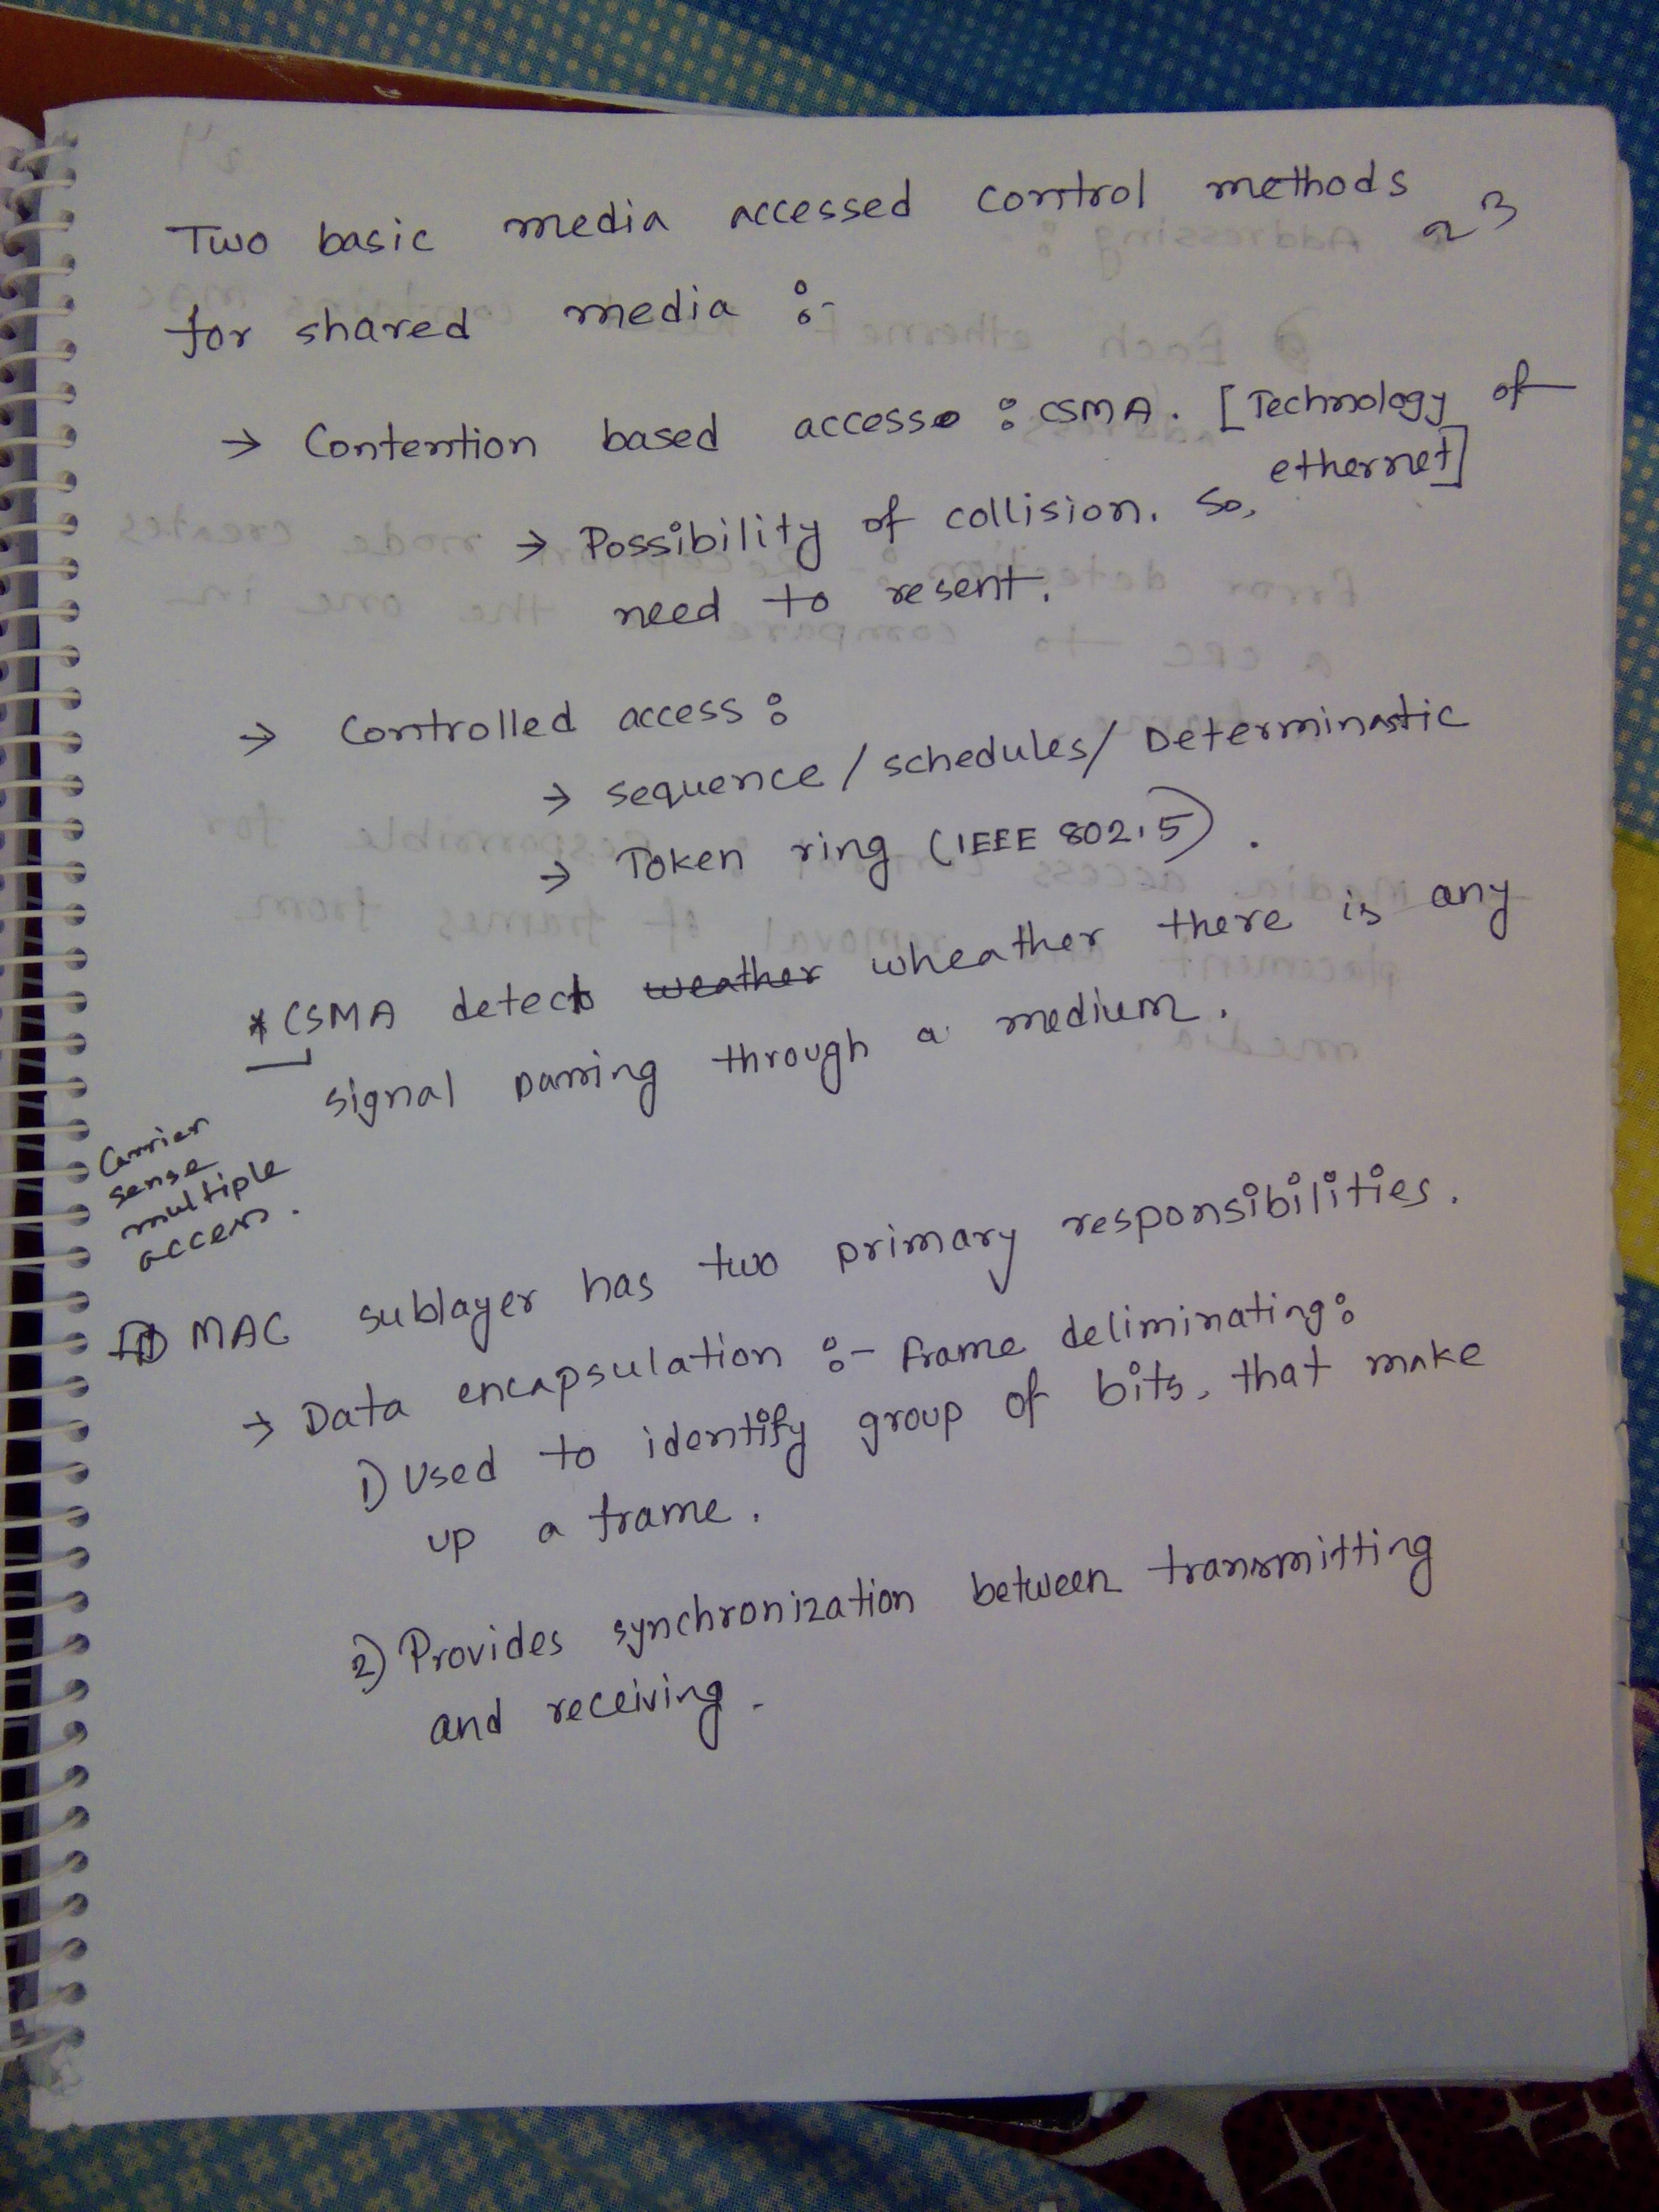 Two basic media accessed control methods
23
for shared media :-
→ Contention based access : CSMA. [Technology of
ethernet]
→ Possibility of collision. So,
need to resent.
→ Controlled access :
→ sequence / schedules / Determinastic
→ Token ring (IEEE 802.5) .
* CSMA detects weather wheather there is any
signal passing through a medium.
Carrier
sense
multiple
access.
MAC sublayer has two primary responsibilities.
→ Data encapsulation :- frame deliminating:
1) Used to identify group of bits, that make
up a frame.
2) Provides synchronization between transmitting
and receiving.